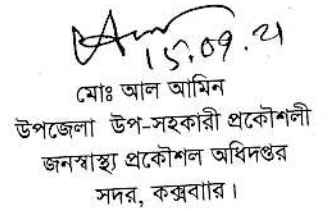 15.09.21
মোঃ আল আমিন
উপজেলা উপ-সহকারী প্রকৌশলী
জনস্বাস্থ্য প্রকৌশল অধিদপ্তর
সদর, কক্সবাার।